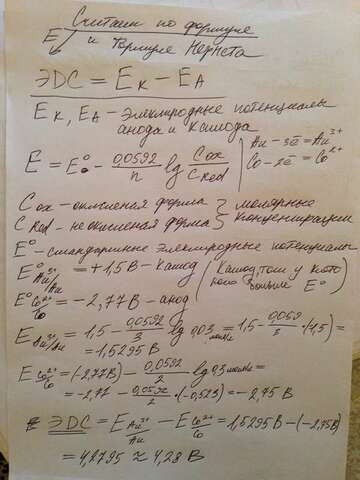 Считаем по формуле
E и формуле Нернста
ЭДС = Eк − EА
Eк, EА − электродные потенциалы
анода и катода
E = E° − 0,0592/n lg Cox/Cred
Au − 3ē = Au³⁺
Co − 2ē = Co²⁺
Cox − окисленная форма
Cred − неокисленная форма } молярные концентрации
E° − стандартные электродные потенциалы
E° Au³⁺/Au = +1,5 В − катод (Катод, тот у кого больше E°)
E° Co²⁺/Co = −2,77 В − анод
E Au³⁺/Au = 1,5 − 0,0592/3 lg 0,03 моль/л = 1,5 − 0,059/3 · (−1,5) =
= 1,5295 В
E Co²⁺/Co = (−2,77В) − 0,0592/2 lg 0,3 моль/л =
= −2,77 − 0,0592/2 · (−0,523) = −2,75 В
ЭДС = E Au³⁺/Au − E Co²⁺/Co = 1,5295 В − (−2,75В)
= 4,2795 ≈ 4,28 В